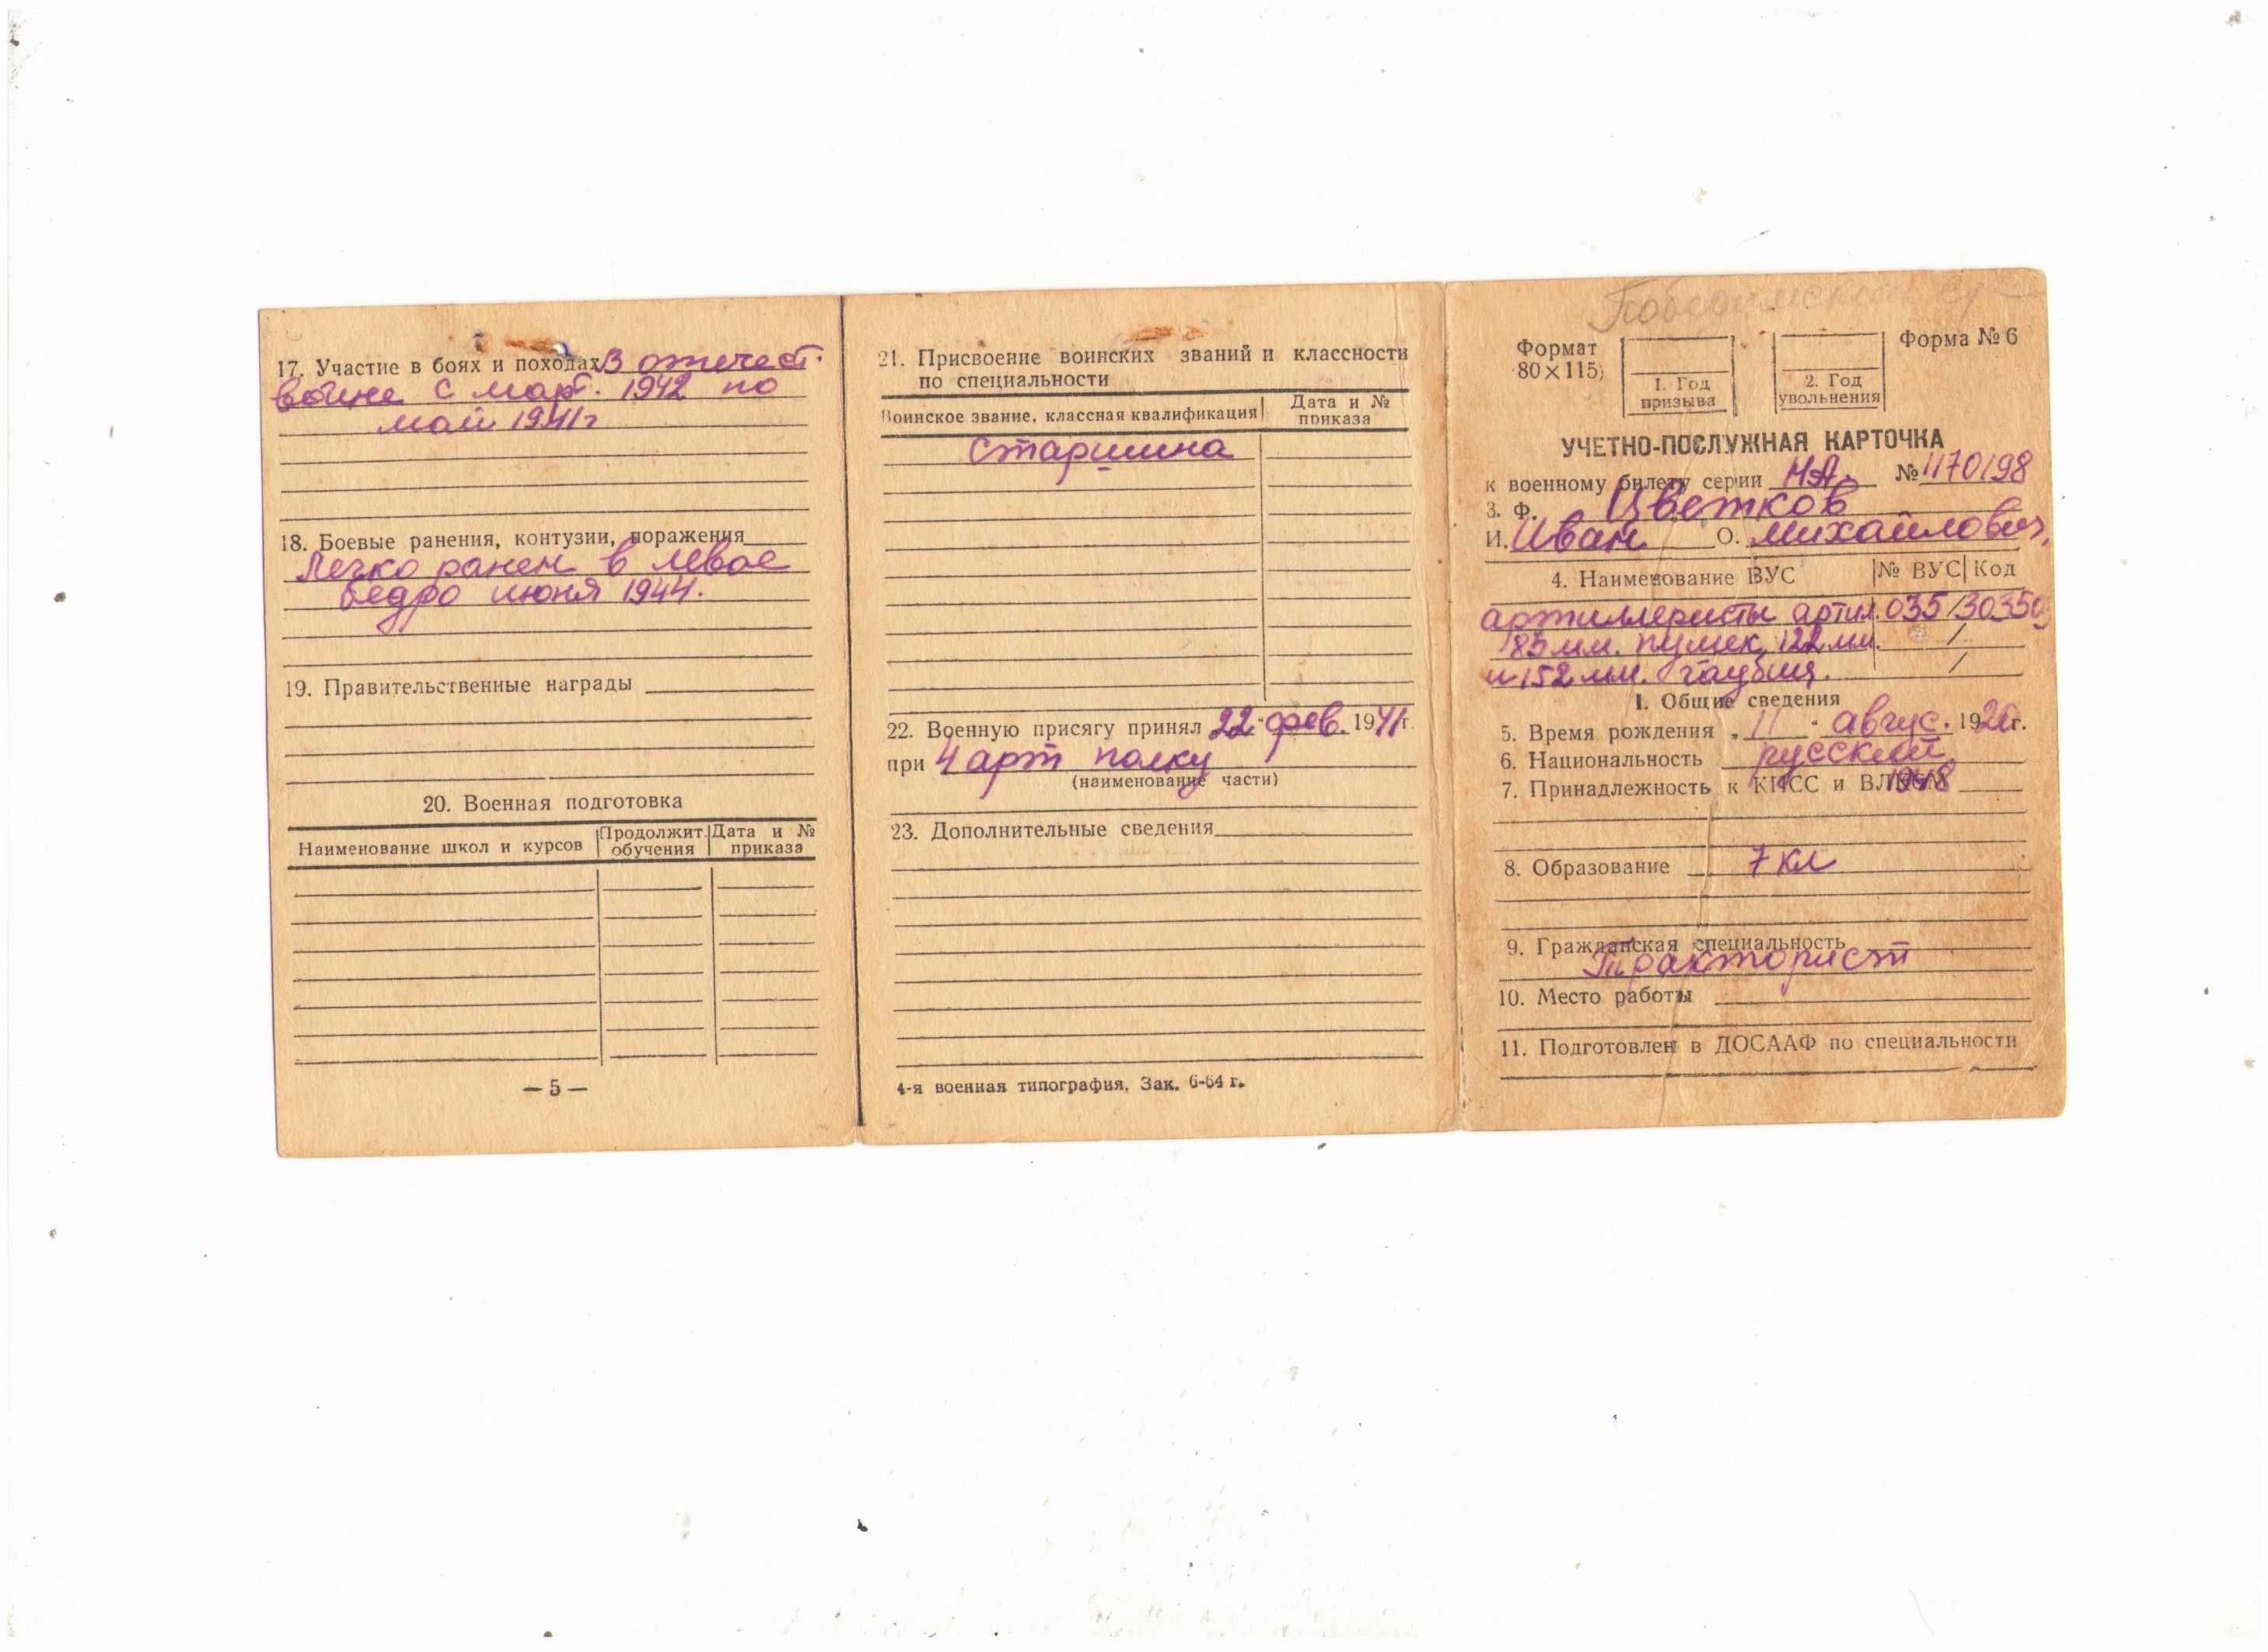 17. Участие в боях и походах В отечест.
войне с март. 1942 по
май 1941г
18. Боевые ранения, контузии, поражения
Легко ранен в левое
бедро июня 1944.
19. Правительственные награды
20. Военная подготовка
Наименование школ и курсов | Продолжит. обучения | Дата и № приказа
— 5 —
21. Присвоение воинских званий и классности
по специальности
Воинское звание, классная квалификация | Дата и № приказа
Старшина
22. Военную присягу принял 22 фев. 1941 г.
при 4 арт полку
(наименование части)
23. Дополнительные сведения
4-я военная типография, Зак. 6-64 г.
Формат
80×115)
1. Год
призыва
2. Год
увольнения
Форма № 6
УЧЕТНО-ПОСЛУЖНАЯ КАРТОЧКА
к военному билету серии НА. № 1170198
3. Ф. Цветков
И. Иван О. Михайлович,
4. Наименование ВУС | № ВУС | Код
артиллеристы артил. 035
85 мм. пушек, 122 мм.
и 152 мм. гаубиц.
I. Общие сведения
5. Время рождения „11" авгус. 1920г.
6. Национальность русский
7. Принадлежность к КПСС и ВЛКСМ
8. Образование 7 кл
9. Гражданская специальность
Тракторист
10. Место работы
11. Подготовлен в ДОСААФ по специальности